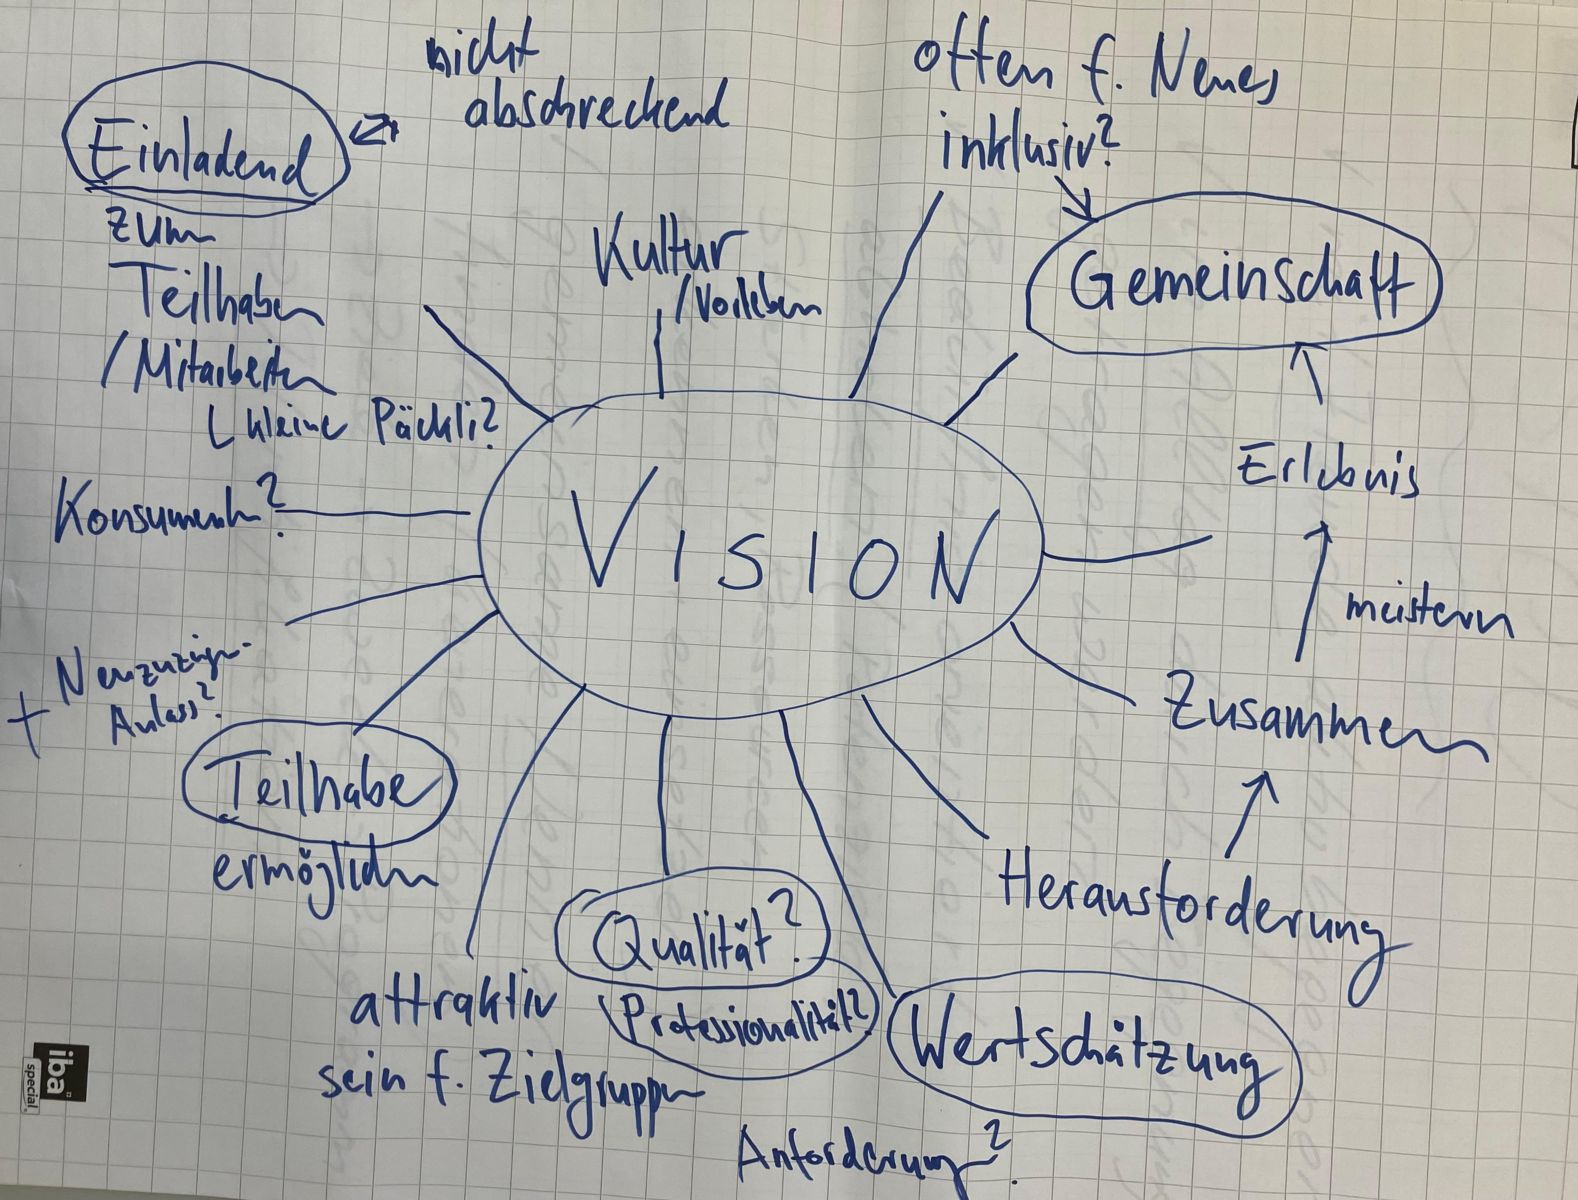 nicht
abschreckend
offen f. Neues
inklusiv?
Einladend
zum
Teilhaben
/Mitarbeiten
kleine Päckli?
Kultur
/Vorleben
Gemeinschaft
Erlebnis
meistern
Zusammen
Herausforderung
VISION
Konsumenten?
+ Neuzuzüger-
Anlass?
Teilhabe
ermöglichen
attraktiv
sein f. Zielgruppen
Qualität?
Professionalität?
Wertschätzung
Anforderung?
iba
special